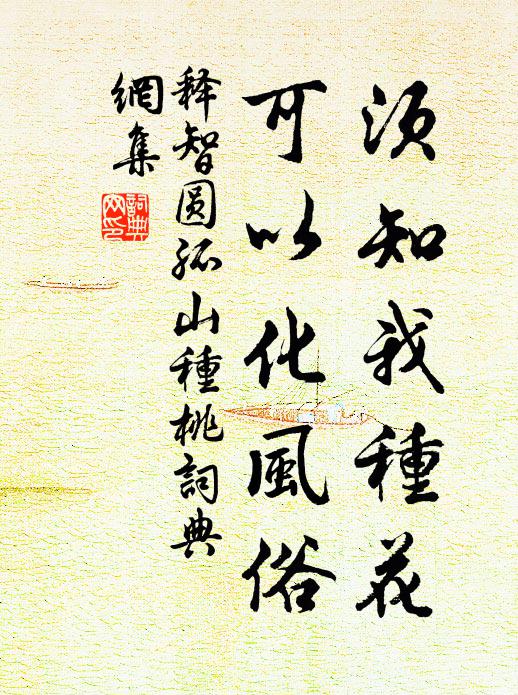 须知我種花
可以化風俗
释智圆孤山種桃詞典
網集
詞典
网印